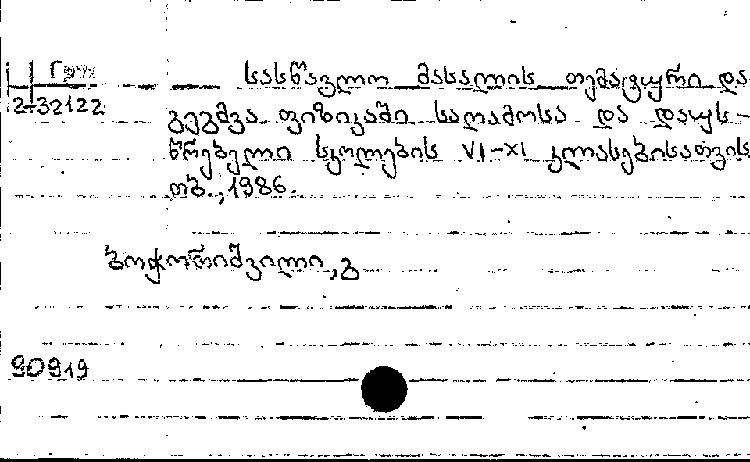 Груз
2-32122
სასწავლო მასალის თემატური და
გეგმვა ფიზიკაში საღამოსა და დაუს-
წრებელი სკოლების VI-XI კლასებისათვის
თბ., 1986.
ბოჭორიშვილი, გ
90919